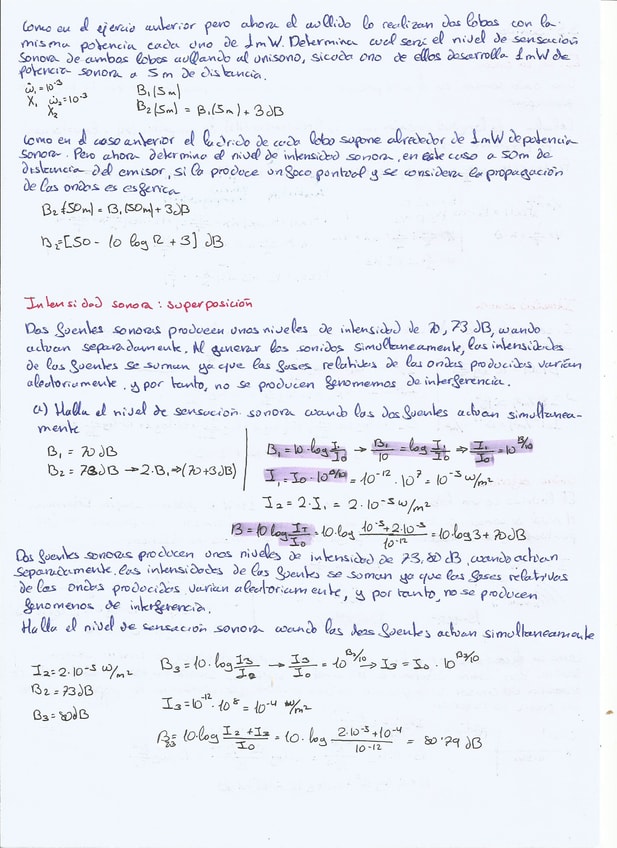 Como en el ejercio anterior pero ahora el aullido lo realizan dos lobos con la
misma potencia cada uno de 1mW. Determina cual será el nivel de sensación
sonora de ambos lobos aullando al unísono, si cada uno de ellos desarrolla 1mW de
potencia sonora a 5m de distancia.
ẇ₁=10⁻³ B₁(5m)
X₁ ẇ₂=10⁻³ B₂(5m) = B₁(5m) + 3dB
X₂
Como en el caso anterior el ladrido de cada lobo supone alrededor de 1mW de potencia
sonora. Pero ahora determina el nivel de intensidad sonora, en este caso a 50m de
distancia del emisor, si lo produce un foco puntual y se considera la propagación
de las ondas es esferica
B₂(50m) = B₁(50m) + 3dB
B₂=[50 - 10 log R + 3] dB
Intensidad sonora: superposición
Dos fuentes sonoras producen unos niveles de intensidad de 70, 73 dB, cuando
actuan separadamente. Al generar los sonidos simultaneamente, las intensidades
de las fuentes se suman ya que las fases relativas de las ondas producidas varian
aleatoriamente, y por tanto, no se producen fenomenos de interferencia.
a) Halla el nivel de sensación sonora cuando las dos fuentes actuan simultanea-
mente
B₁ = 70dB
B₂ = 73dB → 2·B₁ → (70+3dB)
B₁ = 10·log I₁/I₀ → B₁/10 = log I₁/I₀ → I₁/I₀ = 10^B/10
I₁ = I₀·10^B/10 = 10⁻¹²·10⁷ = 10⁻⁵ w/m²
I₂ = 2·I₁ = 2·10⁻⁵ w/m²
B = 10 log I_T/I₀ = 10·log 10⁻⁵+2·10⁻⁵/10⁻¹² = 10 log 3 + 70dB
Dos fuentes sonoras producen unos niveles de intensidad de 73, 80 dB, cuando actuan
separadamente. las intensidades de las fuentes se suman ya que las fases relativas
de las ondas producidas varian aleatoriamente, y por tanto, no se producen
fenomenos de interferencia.
Halla el nivel de sensación sonora cuando las dos fuentes actuan simultaneamente
I₂ = 2·10⁻⁵ w/m²
B₂ = 73dB
B₃ = 80dB
B₃ = 10·log I₃/I₀ → I₃/I₀ = 10^B₃/10 → I₃ = I₀·10^B₃/10
I₃ = 10⁻¹²·10⁸ = 10⁻⁴ w/m²
B₂₃ = 10·log I₂+I₃/I₀ = 10·log 2·10⁻⁵+10⁻⁴/10⁻¹² = 80'79 dB